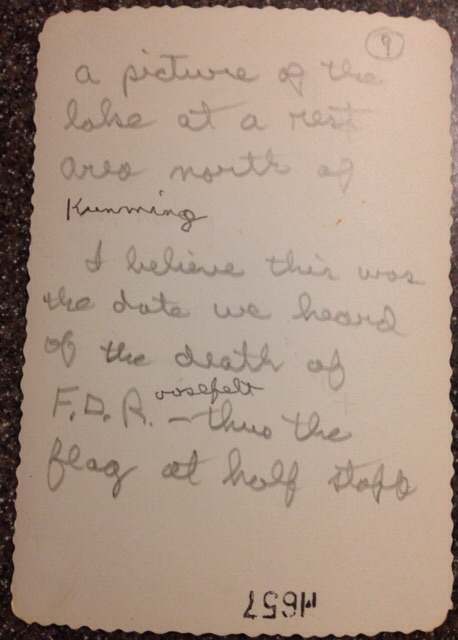 9
a picture of the
lake at a rest
area north of
Kunming
I believe this was
the date we heard
of the death of
oosefelt
F.D.R. - thus the
flag at half staff